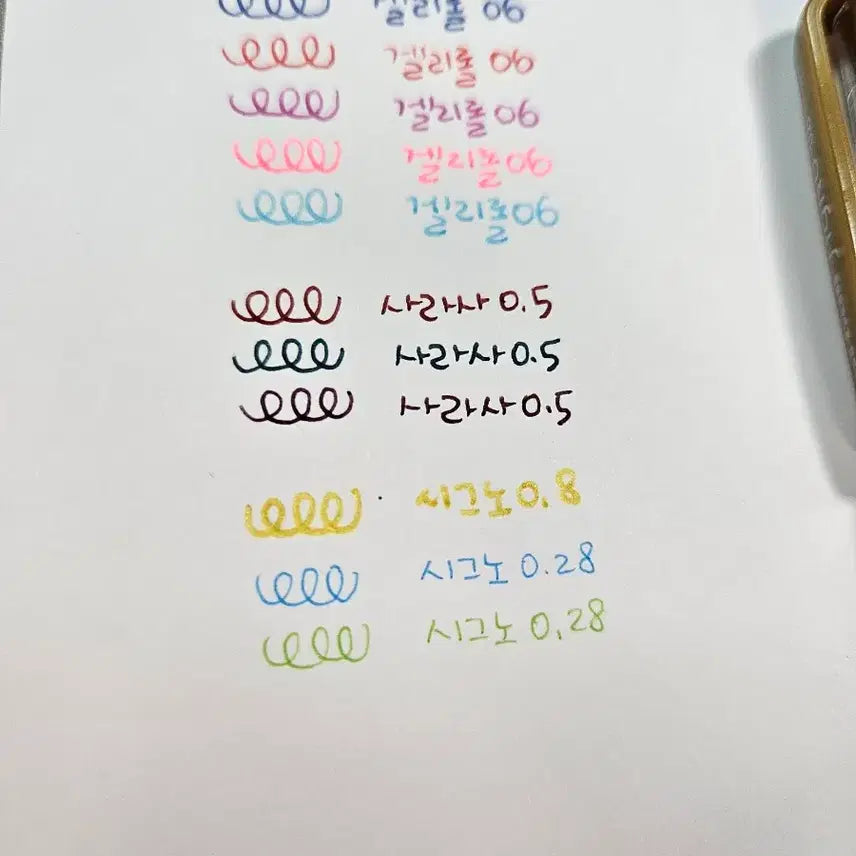 겔리롤 06
겔리롤 06
겔리롤 06
겔리롤 06
겔리롤 06
사라사 0.5
사라사 0.5
사라사 0.5
시그노 0.8
시그노 0.28
시그노 0.28